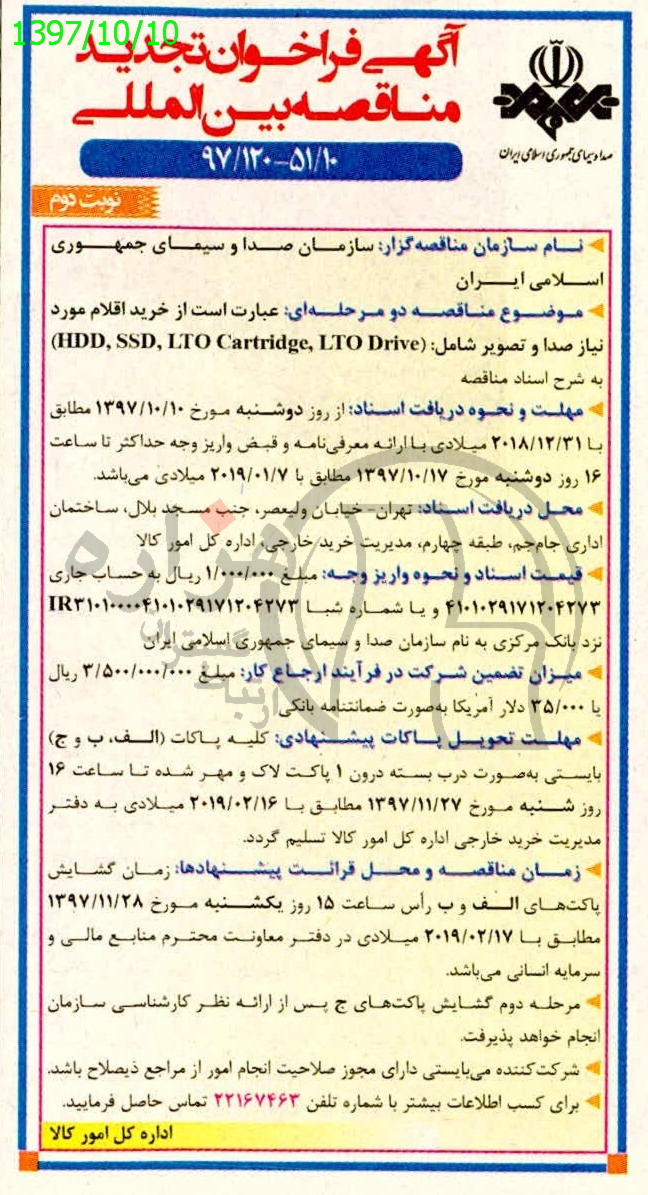 1397/10/10
آگهی فراخوان تجدید
مناقصه بین‌المللی
صدا و سیمای جمهوری اسلامی ایران
۹۷/۱۲۰-۵۱/۱۰
نوبت دوم
نام سازمان مناقصه‌گزار: سازمان صدا و سیمای جمهوری
اسلامی ایران
موضوع مناقصه دو مرحله‌ای: عبارت است از خرید اقلام مورد
نیاز صدا و تصویر شامل: (HDD, SSD, LTO Cartridge, LTO Drive)
به شرح اسناد مناقصه
مهلت و نحوه دریافت اسناد: از روز دوشنبه مورخ ۱۳۹۷/۱۰/۱۰ مطابق
با ۲۰۱۸/۱۲/۳۱ میلادی با ارائه معرفی‌نامه و قبض واریز وجه حداکثر تا ساعت
۱۶ روز دوشنبه مورخ ۱۳۹۷/۱۰/۱۷ مطابق با ۲۰۱۹/۰۱/۷ میلادی می‌باشد.
محل دریافت اسناد: تهران - خیابان ولیعصر، جنب مسجد بلال، ساختمان
اداری جام‌جم، طبقه چهارم، مدیریت خرید خارجی، اداره کل امور کالا
قیمت اسناد و نحوه واریز وجه: مبلغ ۱/۰۰۰/۰۰۰ ریال به حساب جاری
۴۱۰۱۰۲۹۱۷۱۲۰۴۲۷۳ و یا شماره شبا IR۳۱۰۱۰۰۰۰۴۱۰۱۰۲۹۱۷۱۲۰۴۲۷۳
نزد بانک مرکزی به نام سازمان صدا و سیمای جمهوری اسلامی ایران
میزان تضمین شرکت در فرآیند ارجاع کار: مبلغ ۳/۵۰۰/۰۰۰/۰۰۰ ریال
یا ۳۵/۰۰۰ دلار آمریکا به‌صورت ضمانتنامه بانکی
مهلت تحویل پاکات پیشنهادی: کلیه پاکات (الف، ب و ج)
بایستی به‌صورت درب بسته درون ۱ پاکت لاک و مهر شده تا ساعت ۱۶
روز شنبه مورخ ۱۳۹۷/۱۱/۲۷ مطابق با ۲۰۱۹/۰۲/۱۶ میلادی به دفتر
مدیریت خرید خارجی اداره کل امور کالا تسلیم گردد.
زمان مناقصه و محل قرائت پیشنهادها: زمان گشایش
پاکت‌های الف و ب رأس ساعت ۱۵ روز یکشنبه مورخ ۱۳۹۷/۱۱/۲۸
مطابق با ۲۰۱۹/۰۲/۱۷ میلادی در دفتر معاونت محترم منابع مالی و
سرمایه انسانی می‌باشد.
مرحله دوم گشایش پاکت‌های ج پس از ارائه نظر کارشناسی سازمان
انجام خواهد پذیرفت.
شرکت‌کننده می‌بایستی دارای مجوز صلاحیت انجام امور از مراجع ذیصلاح باشد.
برای کسب اطلاعات بیشتر با شماره تلفن ۲۲۱۶۷۴۶۳ تماس حاصل فرمایید.
اداره کل امور کالا
هزاره